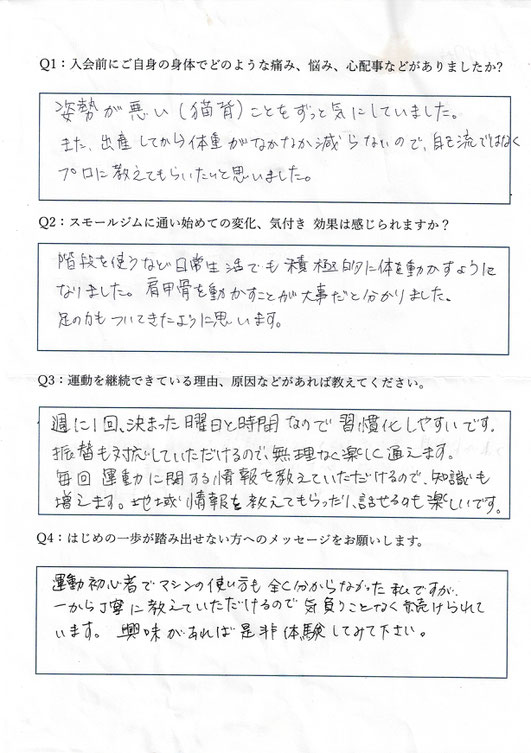 Q1：入会前にご自身の身体でどのような痛み、悩み、心配事などがありましたか?
姿勢が悪い(猫背)ことをずっと気にしていました。
また、出産してから体重がなかなか減らないので、自己流ではなく
プロに教えてもらいたいと思いました。
Q2：スモールジムに通い始めての変化、気付き 効果は感じられますか？
階段を使うなど日常生活でも積極的に体を動かすように
なりました。肩甲骨を動かすことが大事だと分かりました、
足の力もついてきたように思います。
Q3：運動を継続できている理由、原因などがあれば教えてください。
週に1回、決まった曜日と時間なので習慣化しやすいです。
振替も対応していただけるので、無理なく楽しく通えます。
毎回 運動に関する情報を教えていただけるので、知識も
増えます。地域情報を教えてもらったり、話せるのも楽しいです。
Q4：はじめの一歩が踏み出せない方へのメッセージをお願いします。
運動初心者でマシンの使い方も全く分からなかった私ですが、
一から丁寧に教えていただけるので気負うことなく続けられて
います。 興味があれば是非体験してみて下さい。